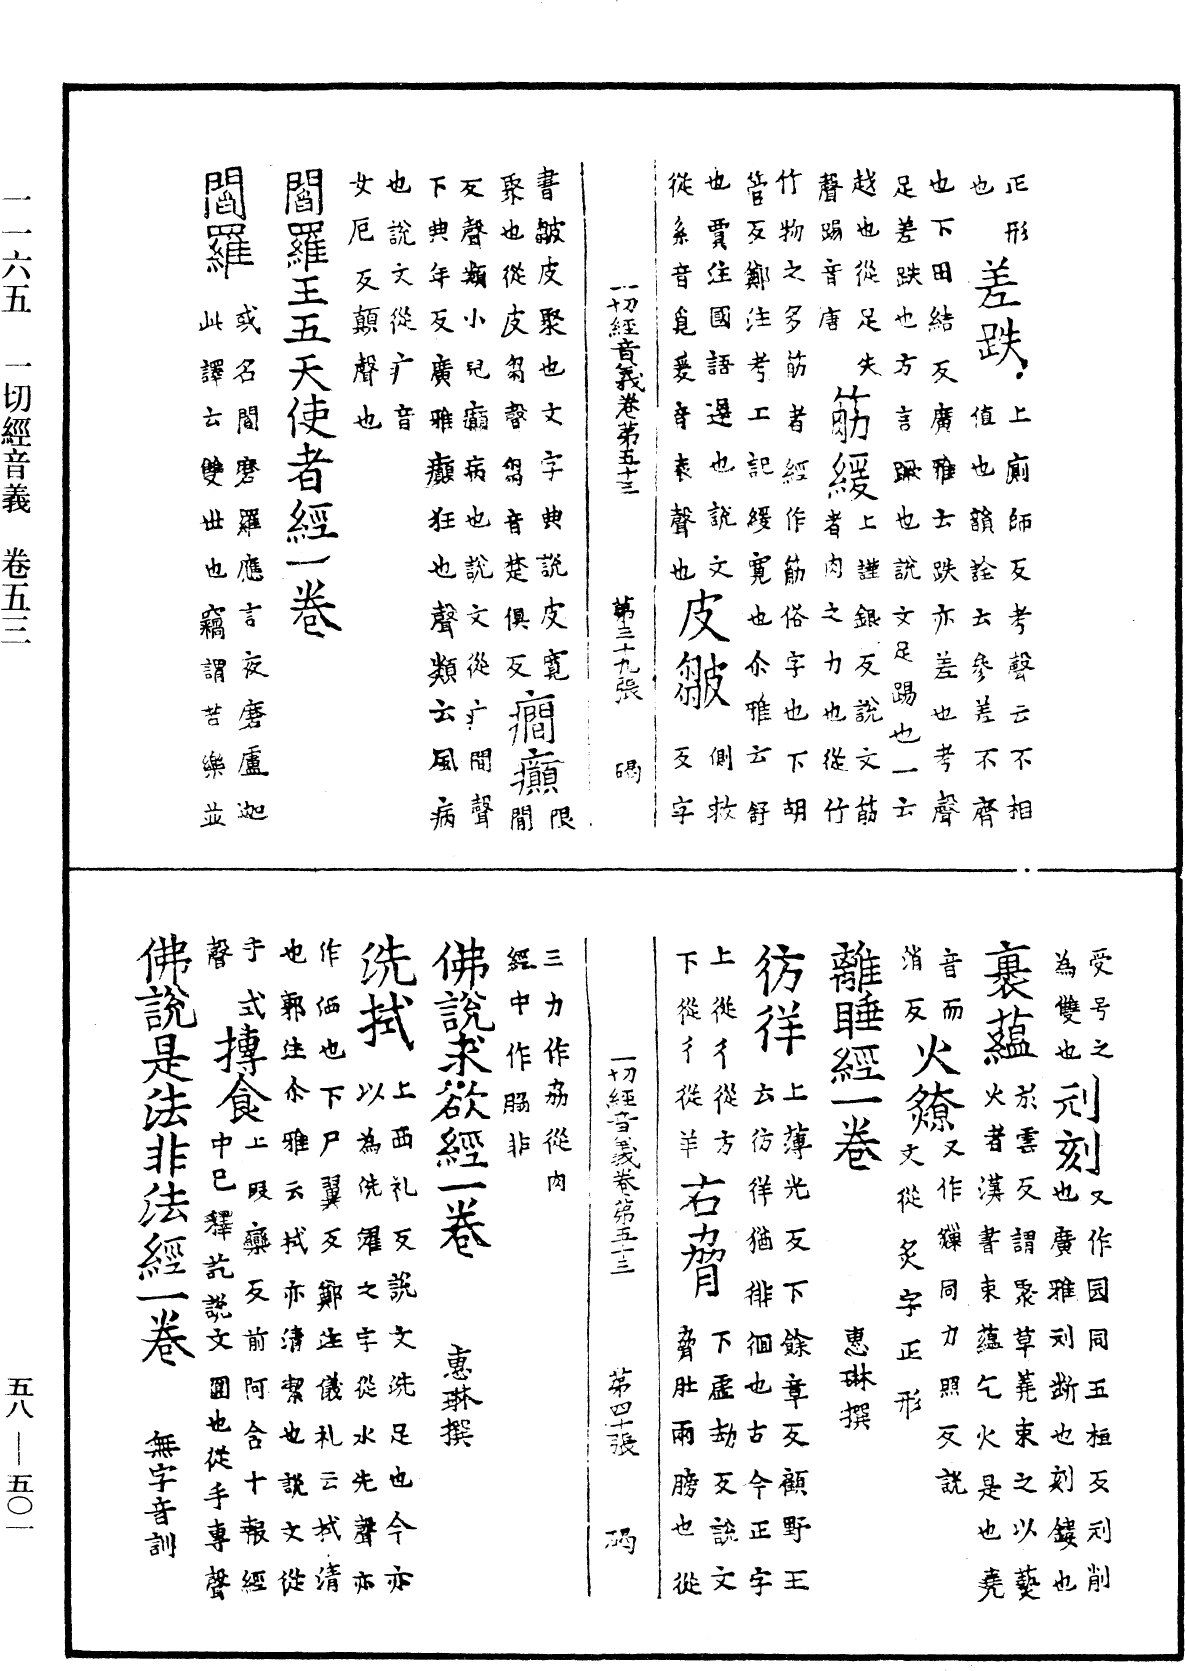 一一六五　一切經音義　卷五三
正形
也
差跌
上廁師反考聲云不相
值也韻詮云參差不齊
也下田結反廣雅云跌亦差也考聲
足差跌也方言蹶也說文足踢也一云
越也從足失
聲踢音唐
筋緩
上謹銀反說文筋
者肉之力也從竹
竹物之多筋者經作筋俗字也下胡
管反鄭注考工記緩寬也尒雅云舒
也賈注國語遲也說文
從糸音覓爰音袁聲也
皮皺
側救
反字
一切經音義卷第五十三　第三十九張　碣
書皺皮聚也文字典說皮寬
聚也從皮芻聲芻音楚俱反
癎癲
限
間
反聲類小兒癲病也說文從疒間聲
下典年反廣雅癲狂也聲類云風病
也說文從疒音
女厄反顛聲也
閻羅王五天使者經一卷
閻羅
或名閻磨羅應言夜磨盧迦
此譯云雙世也竊謂苦樂並
受号之
為雙也
刓刻
又作园同五桓反刓削
也廣雅刓断也刻鏤也
裹藴
於雲反謂聚草蕘束之以爇
火者漢書束蘊乞火是也堯
音而
消反
火燎
又作𤒷同力照反說
文從炙字正形
離睡經一卷　惠琳撰
彷徉
上薄光反下餘章反顧野王
云彷徉猶徘徊也古今正字
上從彳從方
下從彳從羊
右脅
下虛劫反說文
脅肚兩膀也從
一切經音義卷第五十三　第四十張　碣
三力作劦從肉
經中作脇非
佛說求欲經一卷　惠琳撰
洗拭
上西礼反說文洗足也今亦
以為洗濯之字從水先聲亦
作洒也下尸翼反鄭注儀礼云拭清
也郭注尒雅云拭亦清潔也說文從
手式
聲
摶食
上叚欒反前阿含十報經
中已釋訖說文圓也從手專聲
佛說是法非法經一卷　無字音訓
五八—五〇一